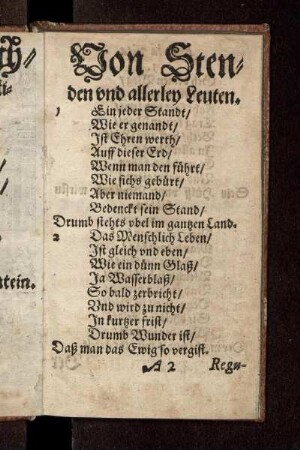 Von Sten⸗
den vnd allerley Leuten.
1 Ein jeder Standt/
Wie er genandt/
Ist Ehren werth/
Auff dieser Erd/
Wenn man den führt/
Wie sichs gebürt/
Aber niemand/
Bedenckt sein Stand/
Drumb stehts vbel im gantzen Land.
2 Das Menschlich Leben/
Ist gleich vnd eben/
Wie ein dünn Glaß/
Ja Wasserblaß/
So bald zerbricht/
Vnd wird zu nicht/
In kurtzer frist/
Drumb Wunder ist/
Daß man das Ewig so vergist.
A 2 Regu-